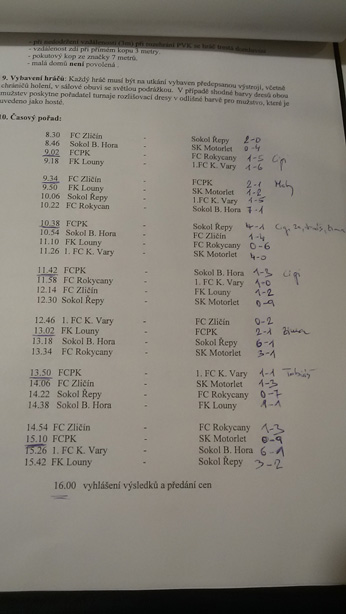 - vzdálenost zdi při přímém kopu 3 metry.
- pokutový kop ze značky 7 metrů.
- malá domů není povolená.
9. Vybavení hráčů: Každý hráč musí být na utkání vybaven předepsanou výstrojí, včetně
chráničů holení, v sálové obuvi se světlou podrážkou. V případě shodné barvy dresů obou
mužstev poskytne pořadatel turnaje rozlišovací dresy v odlišné barvě pro mužstvo, které je
uvedeno jako hosté.
10. Časový pořad:
8.30 FC Zličín - Sokol Řepy 2-0
8.46 Sokol B. Hora - SK Motorlet 0-4
9.02 FCPK - FC Rokycany 1-5
9.18 FK Louny - 1.FC K. Vary 1-6
9.34 FC Zličín - FCPK 2-1
9.50 FK Louny - SK Motorlet 1-2
10.06 Sokol Řepy - 1.FC K. Vary 1-5
10.22 FC Rokycan - Sokol B. Hora 7-1
10.38 FCPK - Sokol Řepy 4-1
10.54 Sokol B. Hora - FC Zličín 1-4
11.10 FK Louny - FC Rokycany 0-6
11.26 1. FC K. Vary - SK Motorlet 4-0
11.42 FCPK - Sokol B. Hora 1-3
11.58 FC Rokycany - 1. FC K. Vary 1-0
12.14 FC Zličín - FK Louny 1-2
12.30 Sokol Řepy - SK Motorlet 0-9
12.46 1. FC K. Vary - FC Zličín 0-2
13.02 FK Louny - FCPK 2-1
13.18 Sokol B. Hora - Sokol Řepy 6-1
13.34 FC Rokycany - SK Motorlet 3-1
13.50 FCPK - 1. FC K. Vary 1-1
14.06 FC Zličín - SK Motorlet 1-3
14.22 Sokol Řepy - FC Rokycany 0-7
14.38 Sokol B. Hora - FK Louny 1-1
14.54 FC Zličín - FC Rokycany 1-3
15.10 FCPK - SK Motorlet 0-9
15.26 1. FC K. Vary - Sokol B. Hora 6-1
15.42 FK Louny - Sokol Řepy 3-2
16.00 vyhlášení výsledků a předání cen